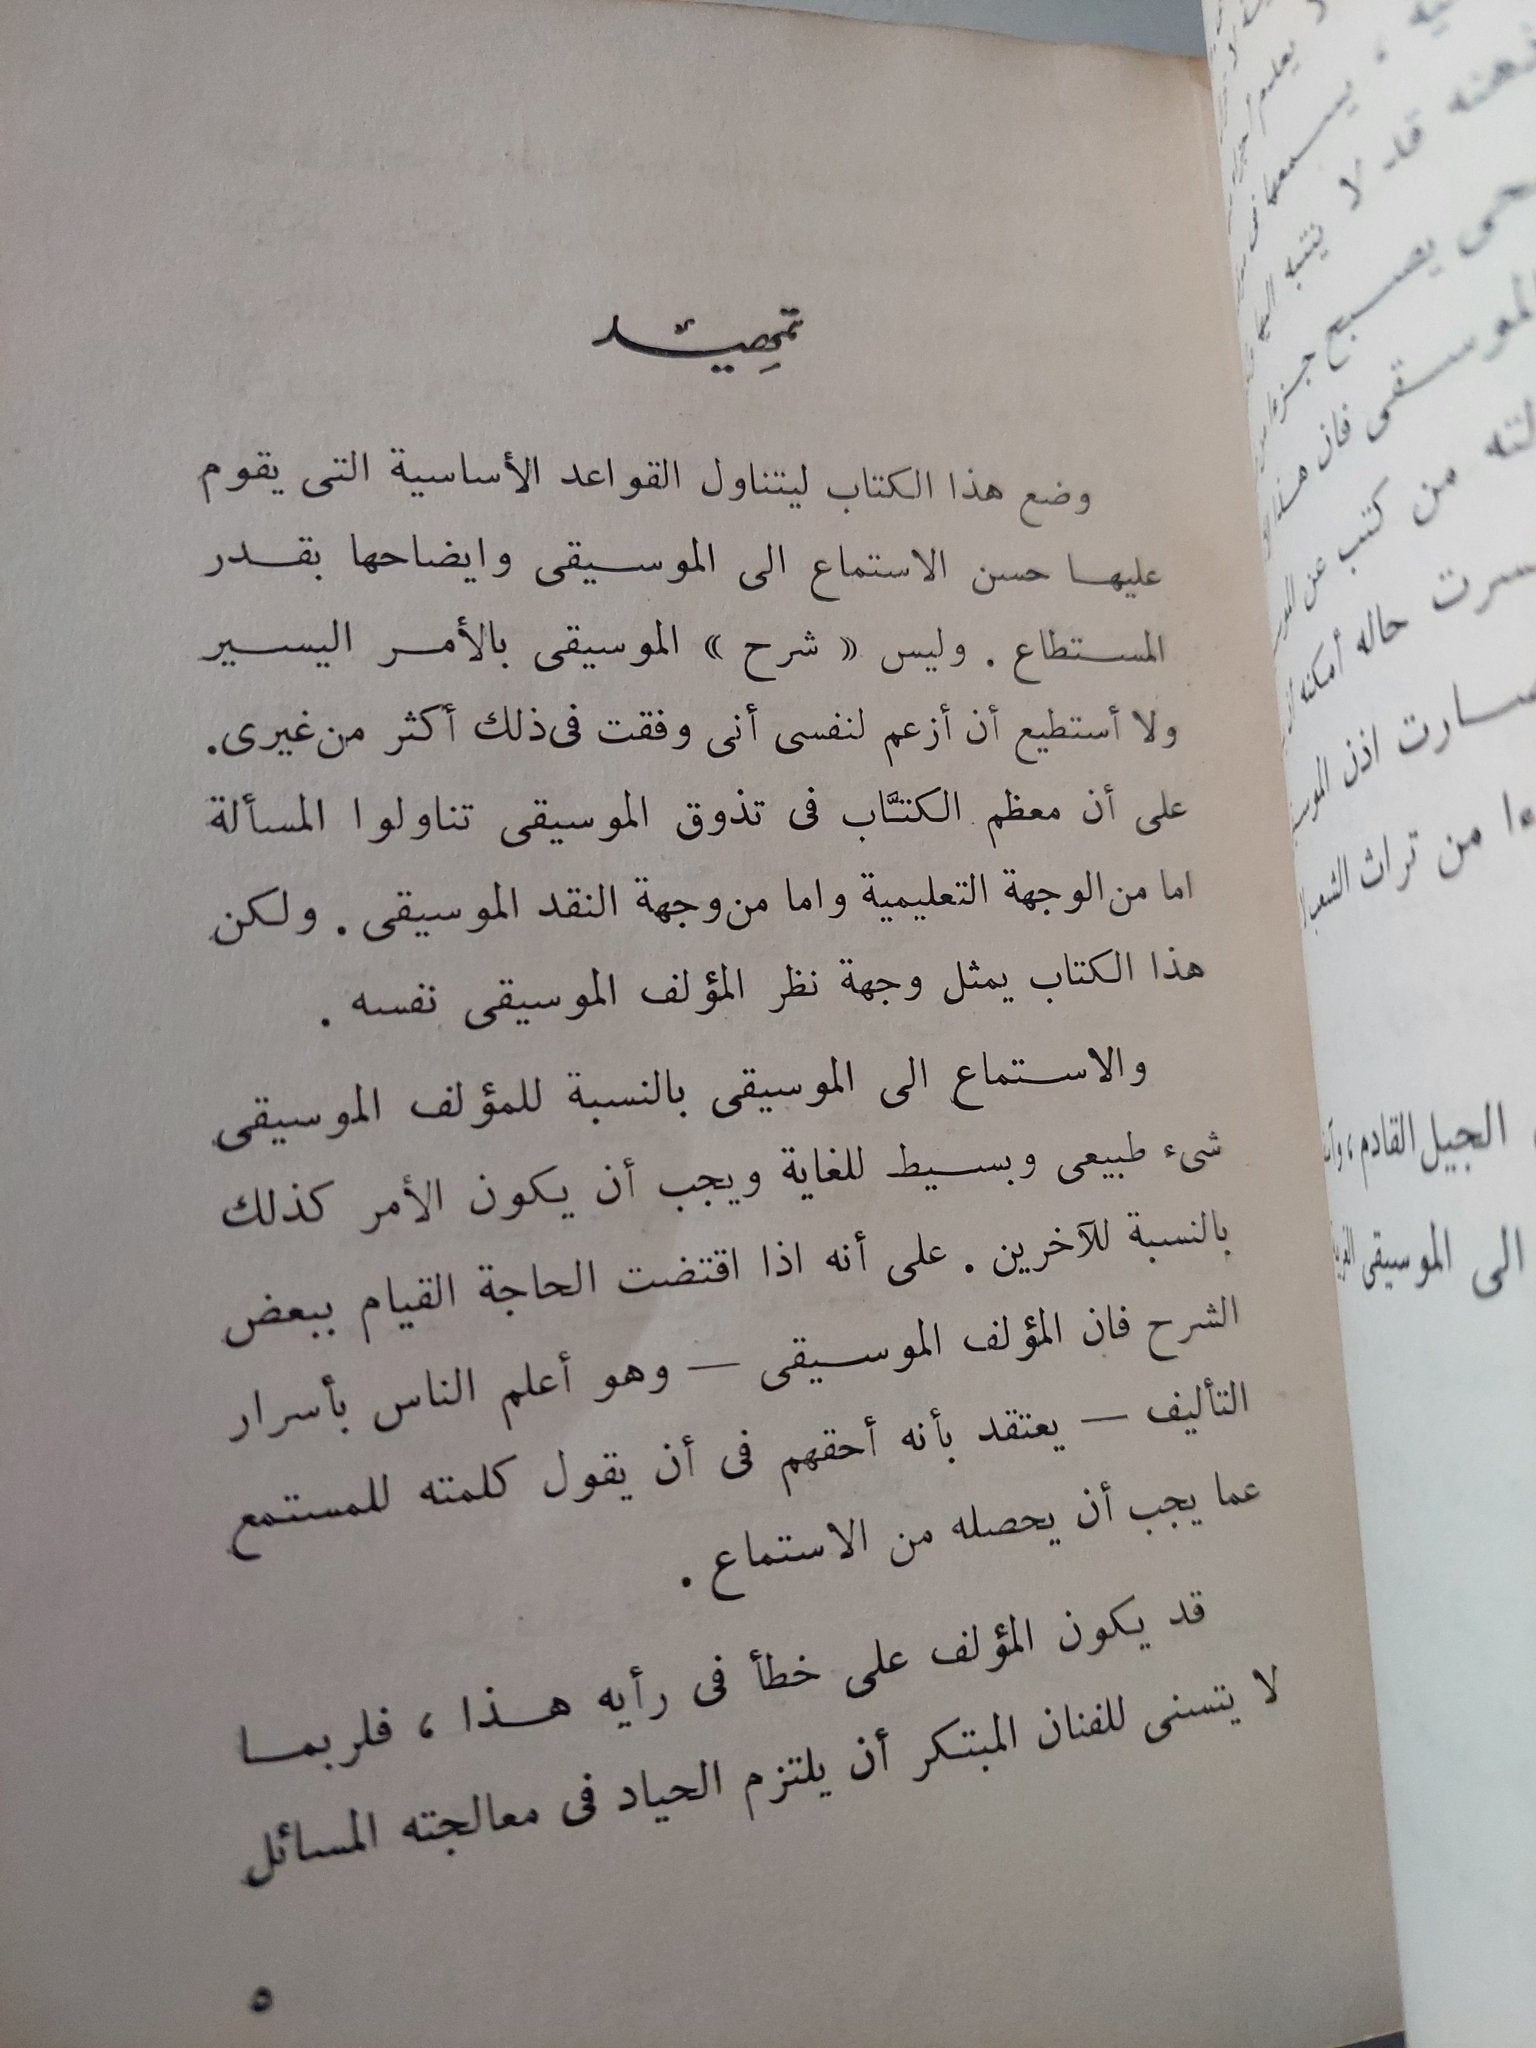 تمهيد
وضع هذا الكتاب ليتناول القواعد الأساسية التى يقوم
عليها حسن الاستماع الى الموسيقى وايضاحها بقدر
المستطاع . وليس « شرح » الموسيقى بالأمر اليسير
ولا أستطيع أن أزعم لنفسى أنى وفقت فى ذلك أكثر من غيرى.
على أن معظم الكتَّاب فى تذوق الموسيقى تناولوا المسألة
اما من الوجهة التعليمية واما من وجهة النقد الموسيقى . ولكن
هذا الكتاب يمثل وجهة نظر المؤلف الموسيقى نفسه .
والاستماع الى الموسيقى بالنسبة للمؤلف الموسيقى
شىء طبيعى وبسيط للغاية ويجب أن يكون الأمر كذلك
بالنسبة للآخرين . على أنه اذا اقتضت الحاجة القيام ببعض
الشرح فان المؤلف الموسيقى — وهو أعلم الناس بأسرار
التأليف — يعتقد بأنه أحقهم فى أن يقول كلمته للمستمع
عما يجب أن يحصله من الاستماع .
قد يكون المؤلف على خطأ فى رأيه هذا ، فلربما
لا يتسنى للفنان المبتكر أن يلتزم الحياد فى معالجته المسائل
٥
قد لا ينتبه
يصبح جزءا
الموسيقى فان هذا
من كتب عن
حاله أمكنه
صارت اذن
من تراث الشعب
الجيل القادم ،
الى الموسيقى